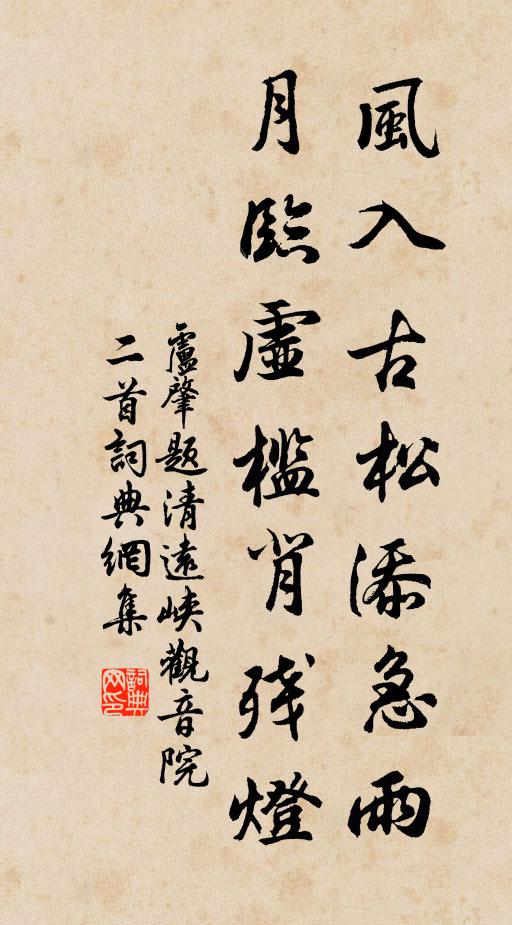 風入古松添急雨
月臨虛檻背殘燈
盧肇題清遠峽觀音院
二首詞典網集
詞典
网印